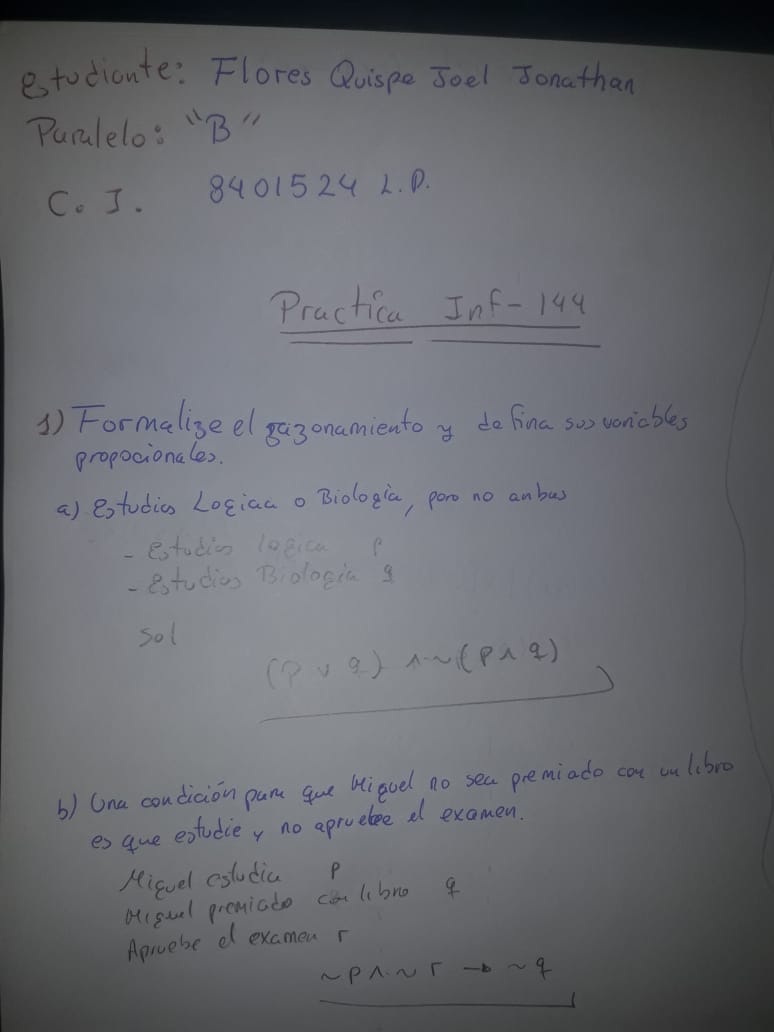 estudiante: Flores Quispe Joel Jonathan
Paralelo: "B"
C. I. 8401524 L.P.
Practica Inf-144
1) Formalize el razonamiento y defina sus variables
propocionales.
a) Estudias Logica o Biologia, pero no anbas
- Estudias logica p
- Estudias Biologia q
Sol
(p ∨ q) ∧ ~(p ∧ q)
b) Una condición para que Miguel no sea premiado con un libro
es que estudie y no apruebe el examen.
Miguel estudia p
Miguel premiado con libro q
Apruebe el examen r
~p ∧ ~r → ~q